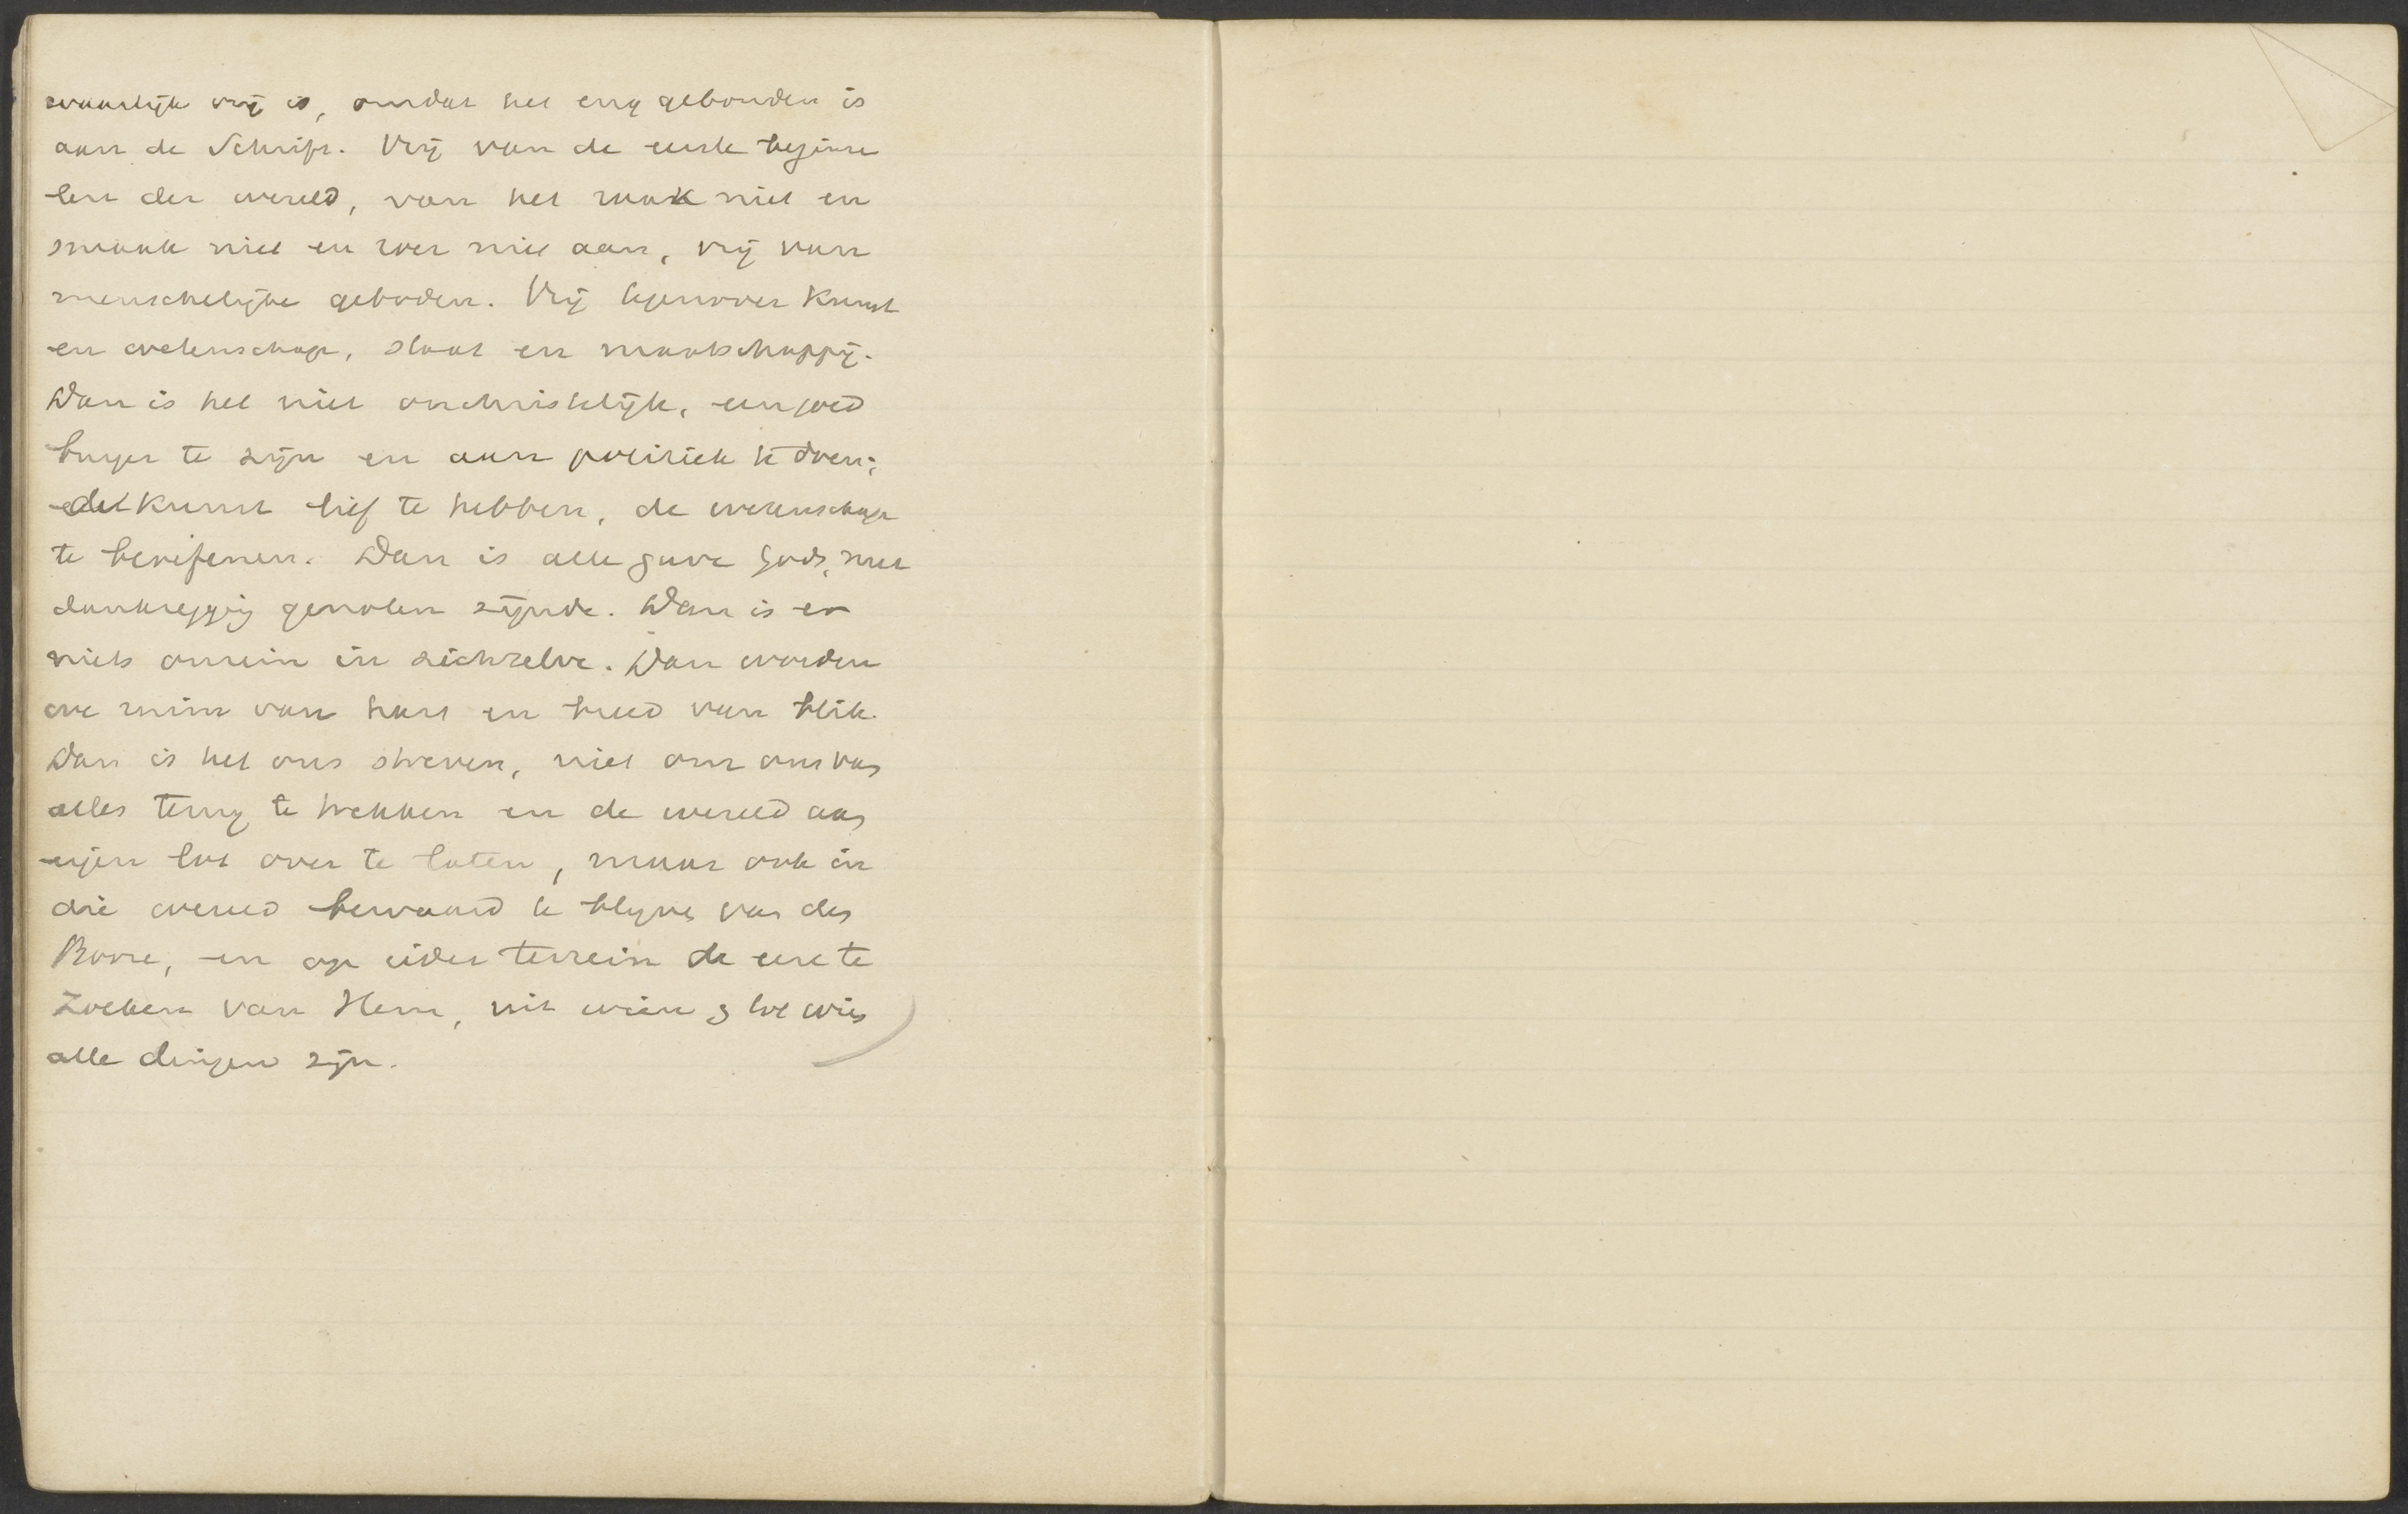 waarlijk vrij is, omdat het eng gebonden is
aan de Schrift. Vrij van de eerste beginse
len der wereld, van het raak niet en
smaak niet en roer niet aan, vrij van
menschelijke geboden. Vrij tegenover Kunst
en wetenschap, staat en maatschappij.
Dan is het niet onchristelijk, een goed
burger te zijn en aan politiek te doen;
de Kunst lief te hebben, de wetenschap
te beoefenen. Dan is alle gave Gods, met
dankzegging genoten zijnde. Dan is er
niets onrein in zichzelve. Dan worden
we ruim van hart en breed van blik.
Dan is het ons streven, niet om ons van
alles terug te trekken en de wereld aan
eigen lot over te laten, maar ook in
die wereld bewaard te blijven van den
Booze, en op ieder terrein de eere te
zoeken van Hem, uit wien & tot wien
alle dingen zijn.